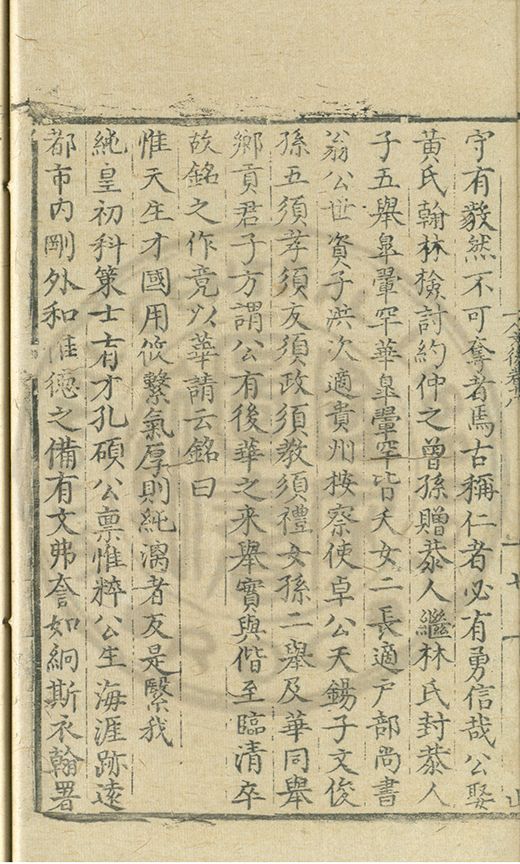 守有毅然不可奪者焉古稱仁者必有勇信哉公娶
黃氏翰林檢討約仲之曾孫贈恭人繼林氏封恭人
子五舉臯翬罕華臯翬罕皆夭女二長適戶部尚書
翁公世資子洪次適貴州按察使卓公天錫子文俊
孫五須孝須友須政須教須禮女孫二舉及華同舉
鄉貢君子方謂公有後華之来舉實與偕至臨清卒
故銘之作竟以華請云銘曰
惟天生才國用攸繫氣厚則純漓者友是繄我
純皇初科策士士有才孔碩公稟惟粹公生海涯跡遠
都市內剛外和惟德之備有文弗奢如絅斯衣翰署